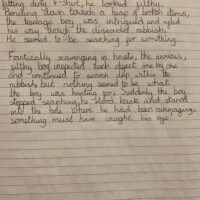 sitting dirty t-shirt, he looked filthy.
towards a heap of broken items,
the teenage boy was intrigued and
his way through the discarded rubbish.
He seemed to be searching for something.
Frantically scavenging in haste, the anxious,
filthy boy inspected each object one by one
and continued to search deep within the
rubbish, but nothing seemed to be what
the boy was hunting for. Suddenly the boy
stopped searching, he stood back and stared
into the hole where he had been rummaging,
something must have caught his eye.